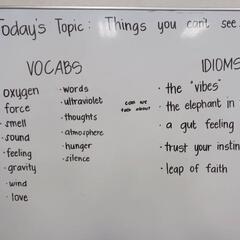 Today's Topic: Things you can't see.
VOCABS
oxygen
force
· smell
· sound
· feeling
· gravity
· wind
· love
· words
· ultraviolet
· thoughts
· atmosphere
· hunger
· silence
can we
talk about
IDIOMS
· the "vibes"
· the elephant in
· a gut feeling
· trust your instin
· leap of faith